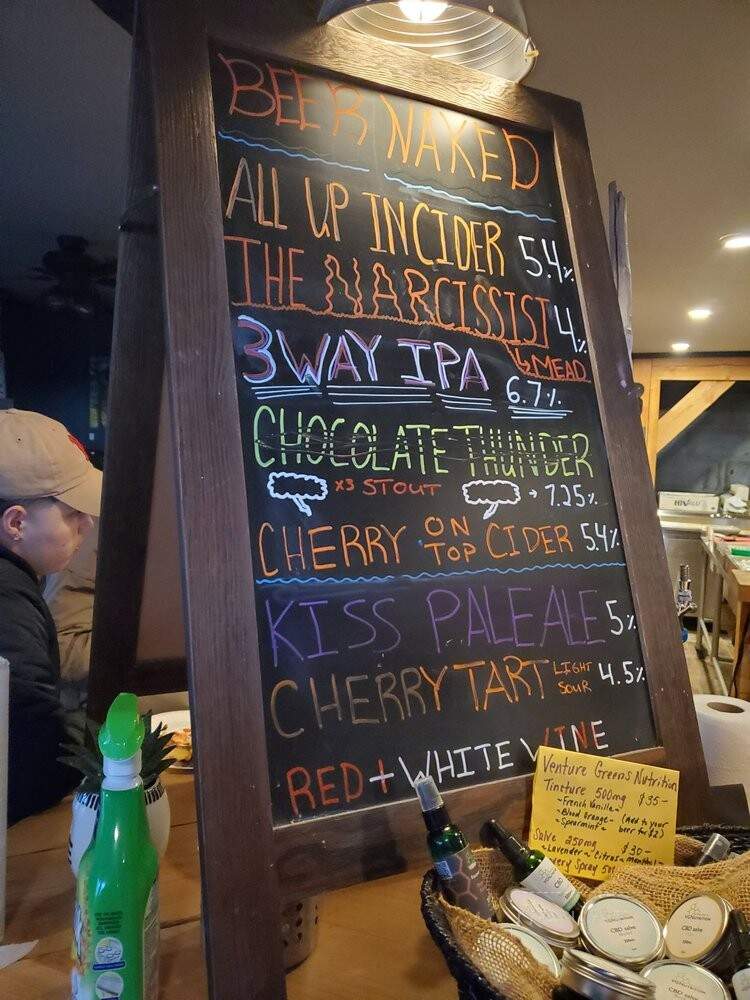 BEER NAKED
ALL UP INCIDER 5.4%
THE NARCISSIST 4%
↳ MEAD
3WAY IPA 6.7%
CHOCOLATE THUNDER
x3 STOUT → 7.25%
CHERRY ON TOP CIDER 5.4%
KISS PALE ALE 5%
CHERRY TART LIGHT SOUR 4.5%
RED + WHITE WINE
Venture Greens Nutrition
Tincture 500mg $35-
- French Vanilla -
- Blood Orange - (Add to your
- Spearmint - beer for $2)
Salve 250mg $30-
- Lavender - Citrus - menthol
Spray
CBD salve
CBD salve